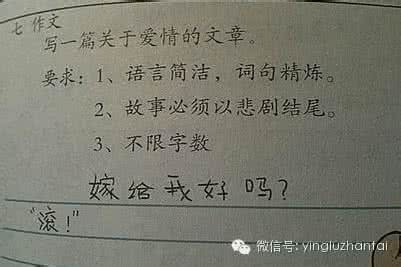 七 作文
写一篇关于爱情的文章。
要求：1、语言简洁，词句精炼。
2、故事必须以悲剧结尾。
3、不限字数
嫁给我好吗？
“滚！”
微信号: yingluzhantai